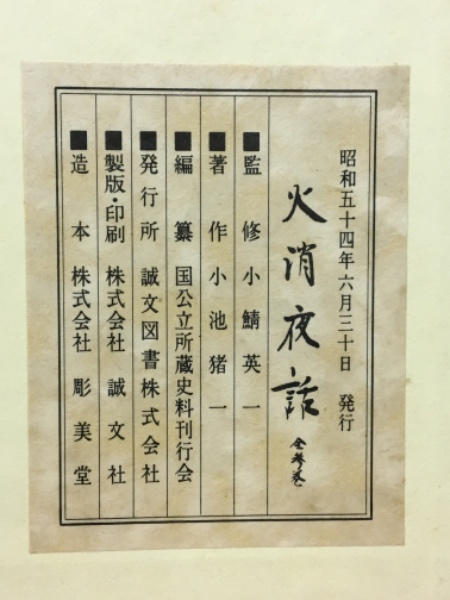 昭和五十四年六月三十日 発行
火消夜話 全参巻
■監修 小鯖英一
■著作 小池猪一
■編纂 国公立所蔵史料刊行会
■発行所 誠文図書株式会社
■製版・印刷 株式会社 誠文社
■造本 株式会社 彫美堂